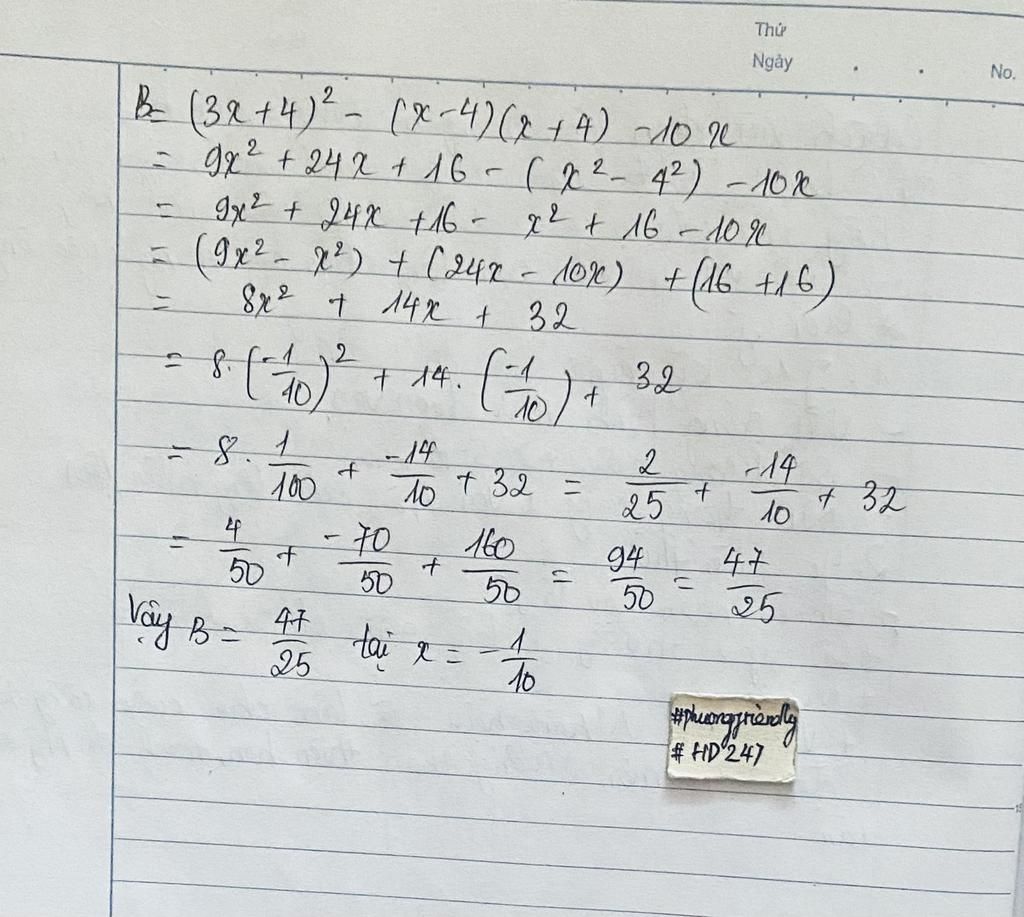 Thứ
Ngày . . No.
B= (3x+4)² - (x-4)(x+4) -10x
= 9x² + 24x + 16 - (x² - 4²) - 10x
= 9x² + 24x +16 - x² + 16 - 10x
= (9x² - x²) + (24x - 10x) + (16 +16)
= 8x² + 14x + 32
= 8. (-1/10)² + 14. (-1/10) + 32
= 8. 1/100 + -14/10 + 32 = 2/25 + -14/10 + 32
= 4/50 + -70/50 + 160/50 = 94/50 = 47/25
Vậy B = 47/25 tại x = -1/10
#phuongfriendly
# HD 247